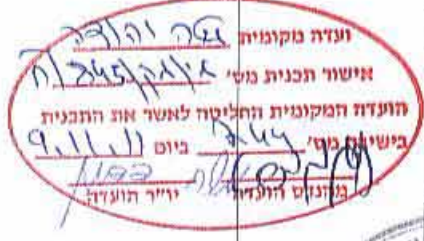 ועדה מקומית מטה יהודה
אישור תכנית מס'
הועדה המקומית החליטה לאשר את התכנית
בישיבה מס' ביום 9.11.11
מהנדס הועדה יו"ר הועדה